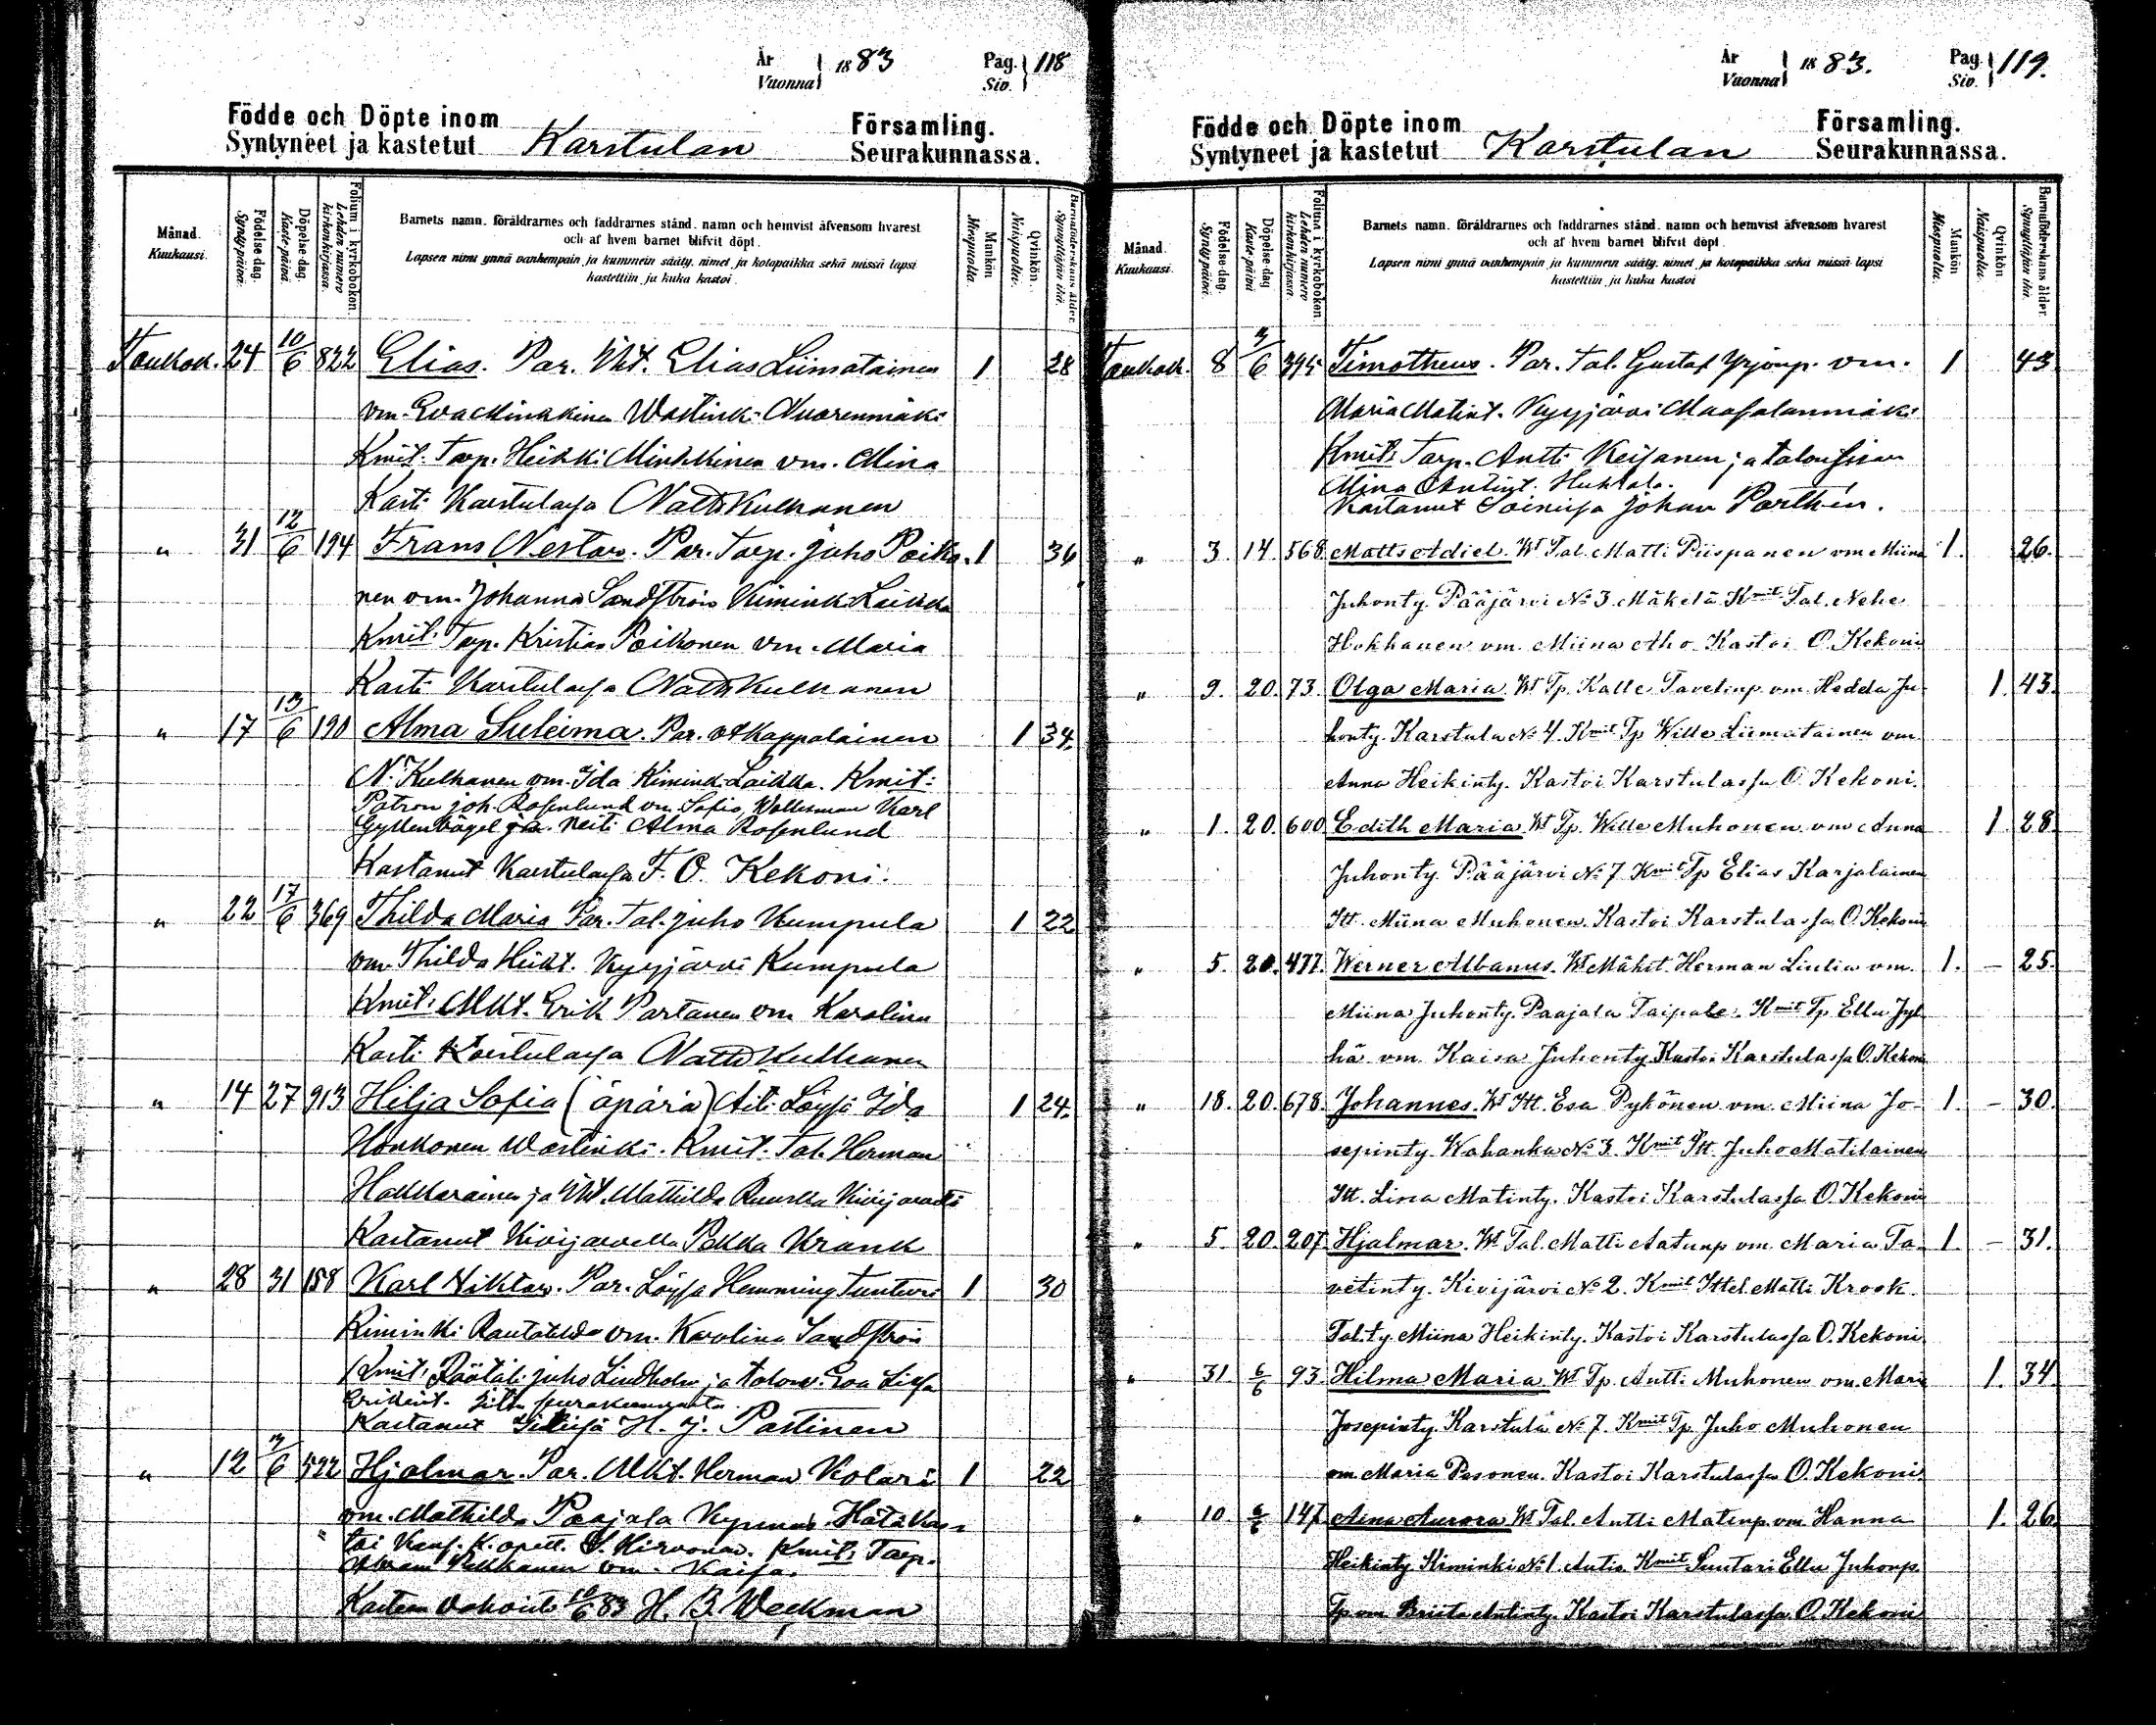 År
Vuonna 1883
Pag.
Siv. 118
Födde och Döpte inom
Syntyneet ja kastetut
Karstulan
Församling.
Seurakunnassa.
Månad.
Kuukausi.
Födelse-dag.
Synty-päivä.
Döpelse-dag.
Kaste-päivä.
Folium i kyrkobokon.
Lehden numero kirkonkirjassa.
Barnets namn, föräldrarnes och faddrarnes stånd, namn och hemvist äfvensom hvarest
och af hvem barnet blifvit döpt.
Lapsen nimi ynnä vanhempain ja kummein sääty, nimet ja kotopaikka sekä missä lapsi
kastettiin ja kuka kastoi.
Mankön
Miespuolia.
Qvinkön.
Naispuolia.
Barnaföderskans ålder.
Synnyttäjän ikä.
Toukok. 24 10/6 822 Elias. Par. Ikt. Elias Liimatainen 1 28
vm. Eva Minkkinen Wastink: Nuorenmäki
Kmit. Torp. Heikki Minkkinen vm. Mina
Kasti Karstulassa Natti Kulhanen
" 31 12/6 194 Frans Nestor. Par. Torp. Juho Poiko- 1 36
nen vm. Johanna Sandström Kimink: Laikka
Kmit. Torp. Kristian Poikonen vm. Maria
Kasti Karstulassa Natti Kulhanen
" 17 13/6 190 Alma Suleima. Par. vt Kappalainen 1 34.
N. Kulhanen vm. Ida Kimink. Laikka. Kmit:
Patron Joh. Rosenlund vm. Sofia, Karl
Gyllenbögel ja neiti Alma Rosenlund
Kastanut Karstulassa F. O. Kekoni.
" 22 17/6 369 Thilda Maria Par. Tal. Juho Kumpula 1 22
vm Thilda Heikt. Kyyjärvi Kumpula
Kmit: Mkt. Erik Partanen vm Karolina
Kasti Karstulassa Natti Kulhanen
" 14 27 913 Hilja Sofia (äpärä) Äiti Löysä Ida 1 24.
Honkonen Wastinki. Kmit. Tal. Herman
Hakkarainen ja Ikt. Mathilda Kivijärveltä
Kastanut Kivijärvellä Pekka Krank
" 28 31 158 Karl Viktor. Par. Löysä Hemming Tunturi 1 30
Kiminki Rautalilda vm. Karolina Sandström
Kmit. Räätäli Juho Lindholm ja talon. Eva Liisa
Erikint.
Kastanut H. J. Pastinen
" 12 3/6 522 Hjalmar. Par. Mkt. Herman Kolari 1 22
vm. Mathilda Paajala Hätä Kas-
toi Kans. K. opett. Hirvonen. Kmit: Torp.
vm. Kaisa.
Kasteen vahvisti 10/6 83 H. B. Weckman
År
Vuonna 1883.
Pag.
Siv. 119.
Födde och Döpte inom
Syntyneet ja kastetut
Karstulan
Församling.
Seurakunnassa.
Månad.
Kuukausi.
Födelse-dag.
Synty-päivä.
Döpelse-dag
Kaste-päivä
Folium i kyrkobokon.
Lehden numero kirkonkirjassa.
Barnets namn, föräldrarnes och faddrarnes stånd, namn och hemvist äfvensom hvarest
och af hvem barnet blifvit döpt.
Lapsen nimi ynnä vanhempain ja kummein sääty, nimet ja kotopaikka sekä missä lapsi
kastettiin ja kuka kastoi
Mankön
Miespuolia.
Qvinkön
Naispuolia.
Barnaföderskans ålder.
Synnyttäjän ikä.
Toukok. 8 3/6 395 Timotheus. Par. Tal. Gustaf Yrjönp. vm. 1 43
Maria Matint. Kyyjärvi Maasalanmäki
Kmit. Torp. Antti Keijanen ja talon
Mina Antint. Huktala.
Kastanut Soinissa Johan Parthén.
" 3. 14. 568. Matts Adiel. Wt Tal. Matti Piispanen vm Miina 1. 26.
Juhonty. Pääjärvi No 3. Mäkelä Kmit Tal. Nehe
Hokkanen vm. Miina Aho Kastoi O. Kekoni
" 9. 20. 73. Olga Maria. Wt Tp. Kalle Tavetinp. vm. Hedda Ju- 1. 43.
honty. Karstula No 4. Kmit Tp Wille Liimatainen vm
Anna Heikinty. Kastoi Karstulassa O. Kekoni.
" 1. 20. 600 Edith Maria Wt Tp. Wille Muhonen vm Anna 1. 28.
Juhonty. Pääjärvi No 7 Kmit Tp Elias Karjalainen
Itt. Miina Muhonen. Kastoi Karstulassa O. Kekoni
" 5. 20. 477. Werner Albanus. Wt Mäkit. Herman Lintia vm. 1. – 25.
Miina Juhonty. Paajala Taipale. Kmit Tp Ellu Jyl-
hä vm Kaisa Juhonty. Kastoi Karstulassa O. Kekoni
" 18. 20. 678. Johannes. Wt Itt. Esa Pykönen vm. Miina Jo- 1. – 30.
sepinty. Wahanka No 3. Kmit Itt. Juho Matilainen
Itt. Liisa Matinty. Kastoi Karstulassa O. Kekoni
" 5. 20. 207. Hjalmar. Wt Tal. Matti Aatunp vm. Maria Ta- 1. – 31.
vetinty. Kivijärvi No 2. Kmit Ittel. Matti Krook.
Tal.ty. Miina Heikinty. Kastoi Karstulassa O. Kekoni.
" 31 6/6 93. Hilma Maria Wt Tp. Antti Muhonen vm. Mari 1. 34.
Josepinty. Karstula No 7. Kmit Tp Juho Muhonen
vm Maria Pesonen. Kastoi Karstulassa O. Kekoni.
" 10 6/6 147 Aina Aurora Wt Tal. Antti Matinp. vm. Hanna 1. 26.
Heikinty. Kiminki No 1. Antia Kmit Suutari Ellu Juhonp.
Tp vm Briita Antinty. Kastoi Karstulassa O. Kekoni